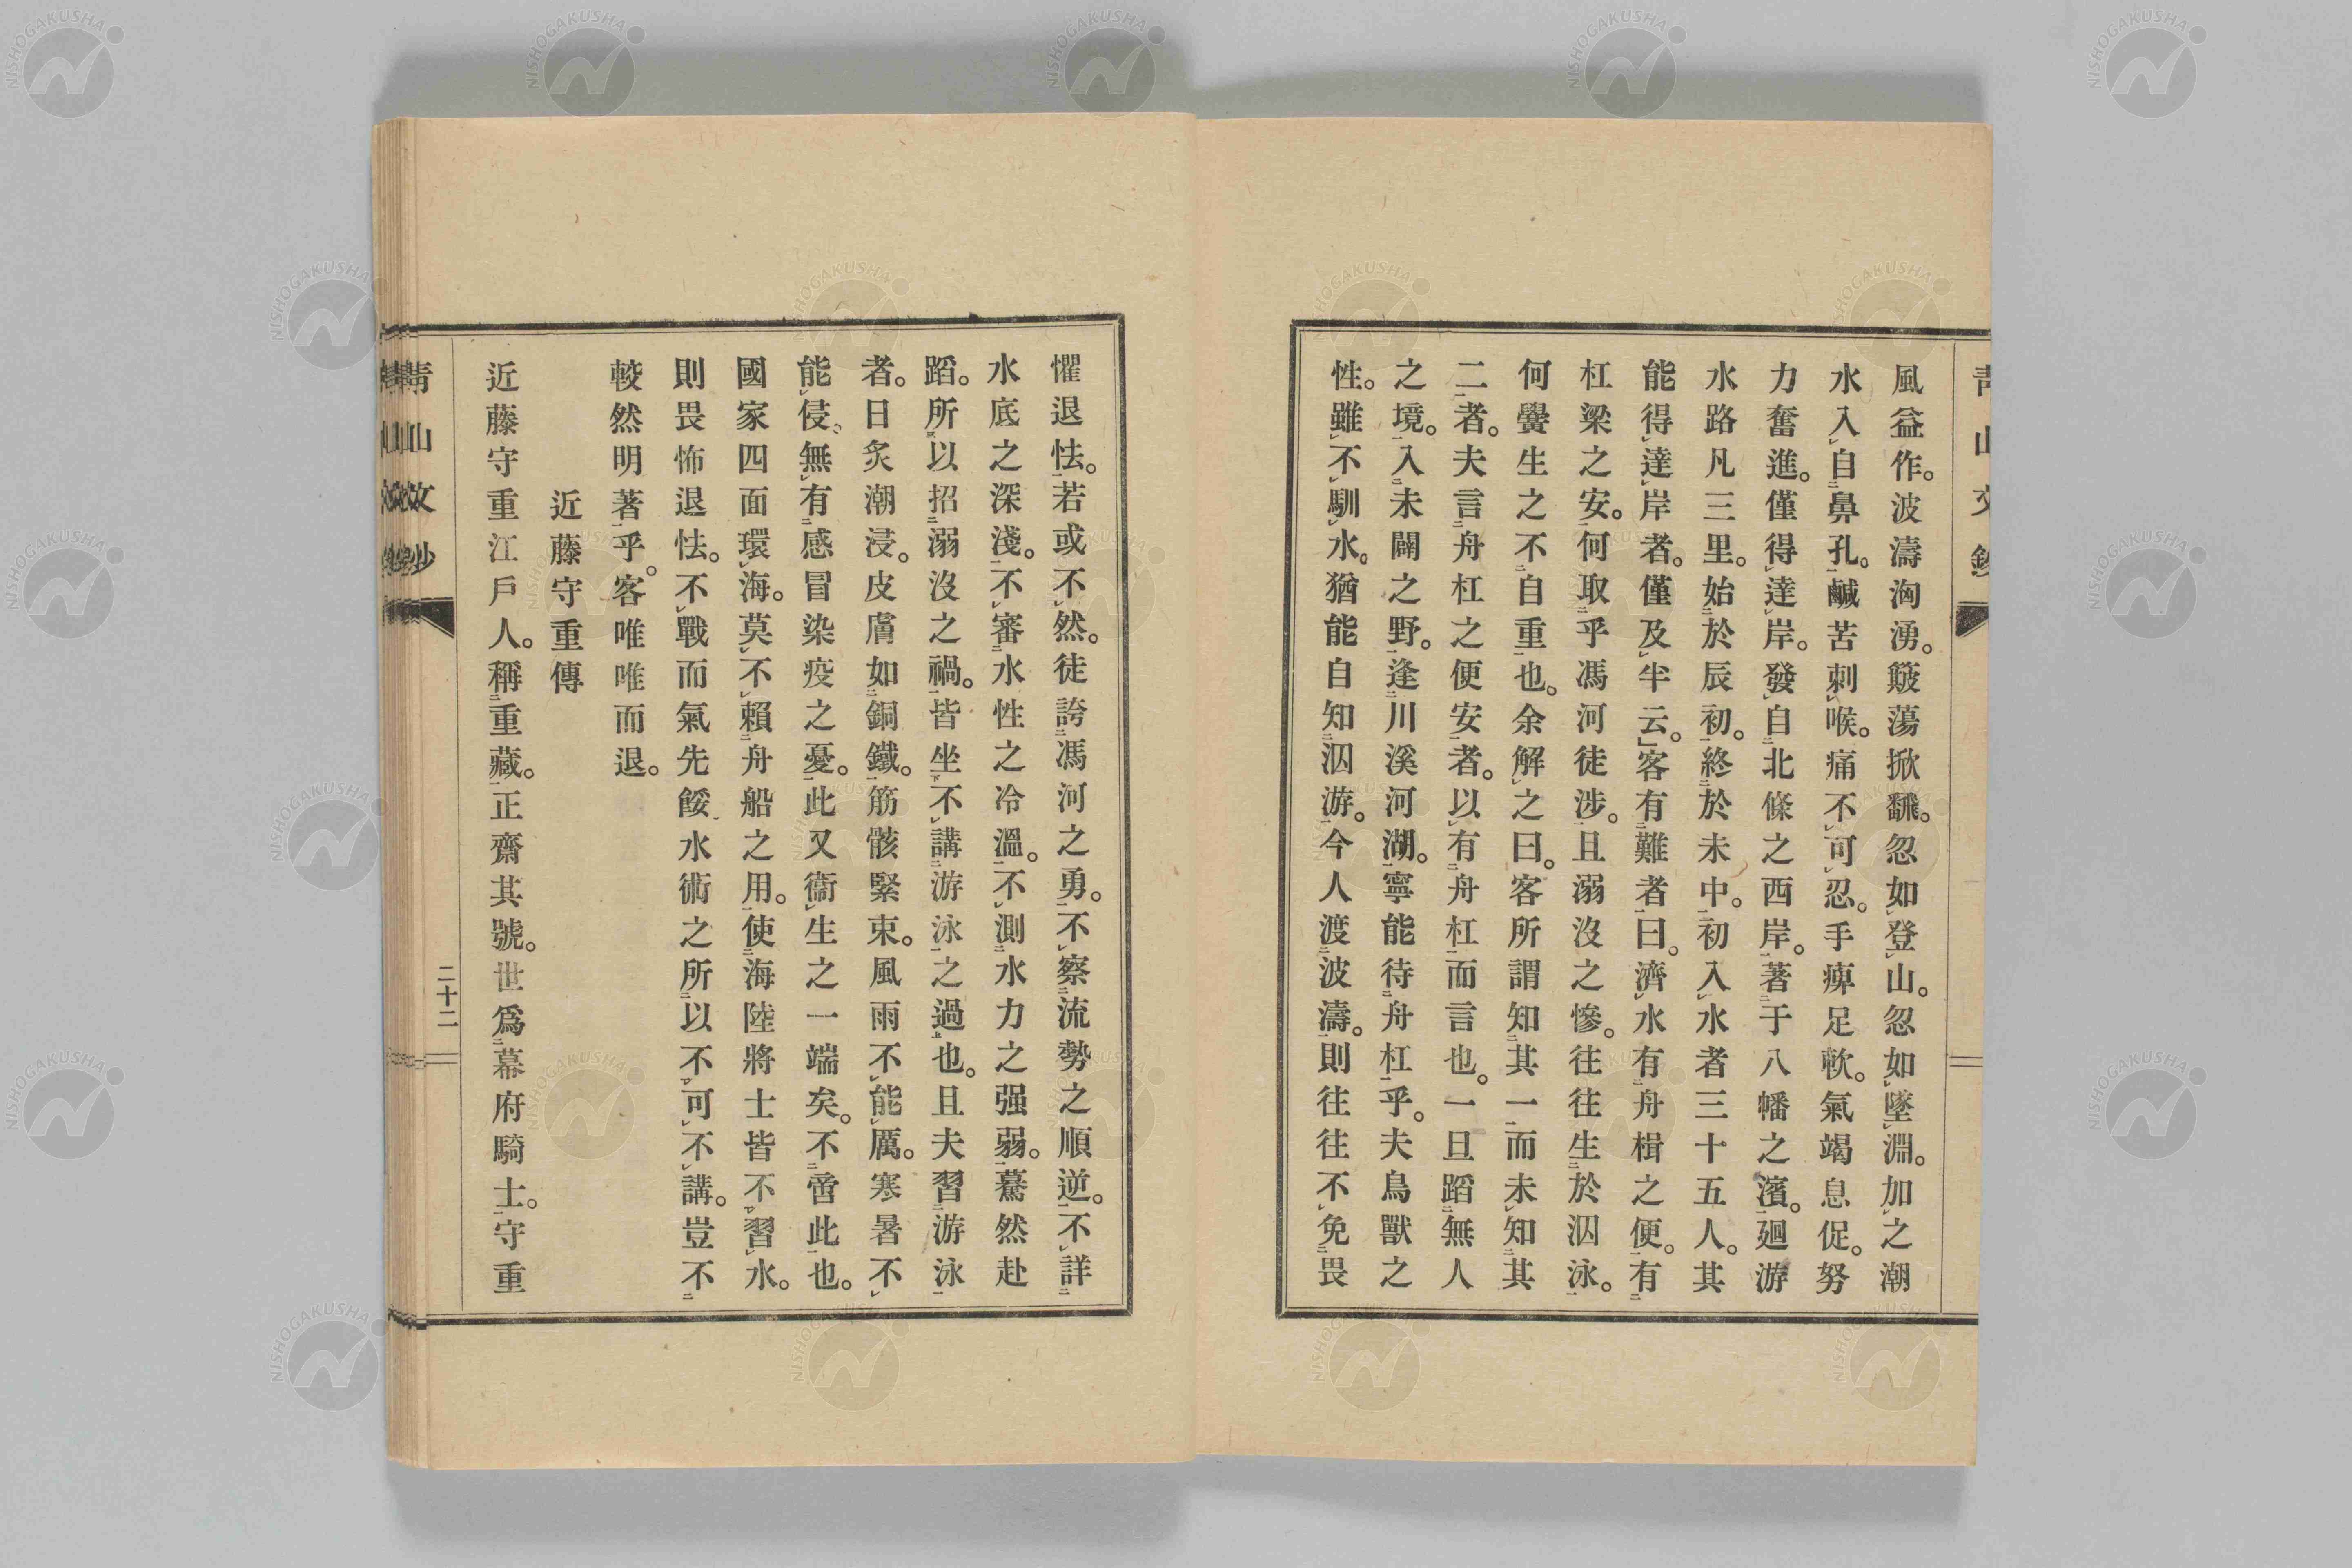 風益作。波濤洶湧。簸蕩掀飜。忽如登山。忽如墜淵。加之潮
水入自鼻孔。鹹苦刺喉。痛不可忍。手痺足軟。氣竭息促。努
力奮進。僅得達岸。發自北條之西岸。著于八幡之濱。廻游
水路凡三里。始於辰初。終於未中。初入水者三十五人。其
能得達岸者。僅及半云。」客有難者曰。濟水有舟楫之便。有
杠梁之安。何取乎馮河徒涉。且溺沒之慘。往往生於泅泳。
何黌生之不自重也。余解之曰。客所謂知其一而未知其
二者。夫言舟杠之便安者。以有舟杠而言也。一旦蹈無人
之境。入未闢之野。逢川溪河湖。寧能待舟杠乎。夫鳥獸之
性。雖不馴水。猶能自知泅游。今人渡波濤。則往往不免畏
懼退怯。若或不然。徒誇馮河之勇。不察流勢之順逆。不詳
水底之深淺。不審水性之冷溫。不測水力之强弱。驀然赴
蹈。所以招溺沒之禍。皆坐不講游泳之過也。且夫習游泳
者。日炙潮浸。皮膚如銅鐵。筋骸緊束。風雨不能厲。寒暑不
能侵、無有感冒染疫之憂。此又衞生之一端矣。不啻此也。
國家四面環海。莫不賴舟船之用。使海陸將士皆不習水。
則畏怖退怯。不戰而氣先餒水術之所以不可不講。豈不
較然明著乎。客唯唯而退。
近藤守重傳
近藤守重江戶人。稱重藏。正齋其號。世爲幕府騎士。守重
靑山文鈔
二十二